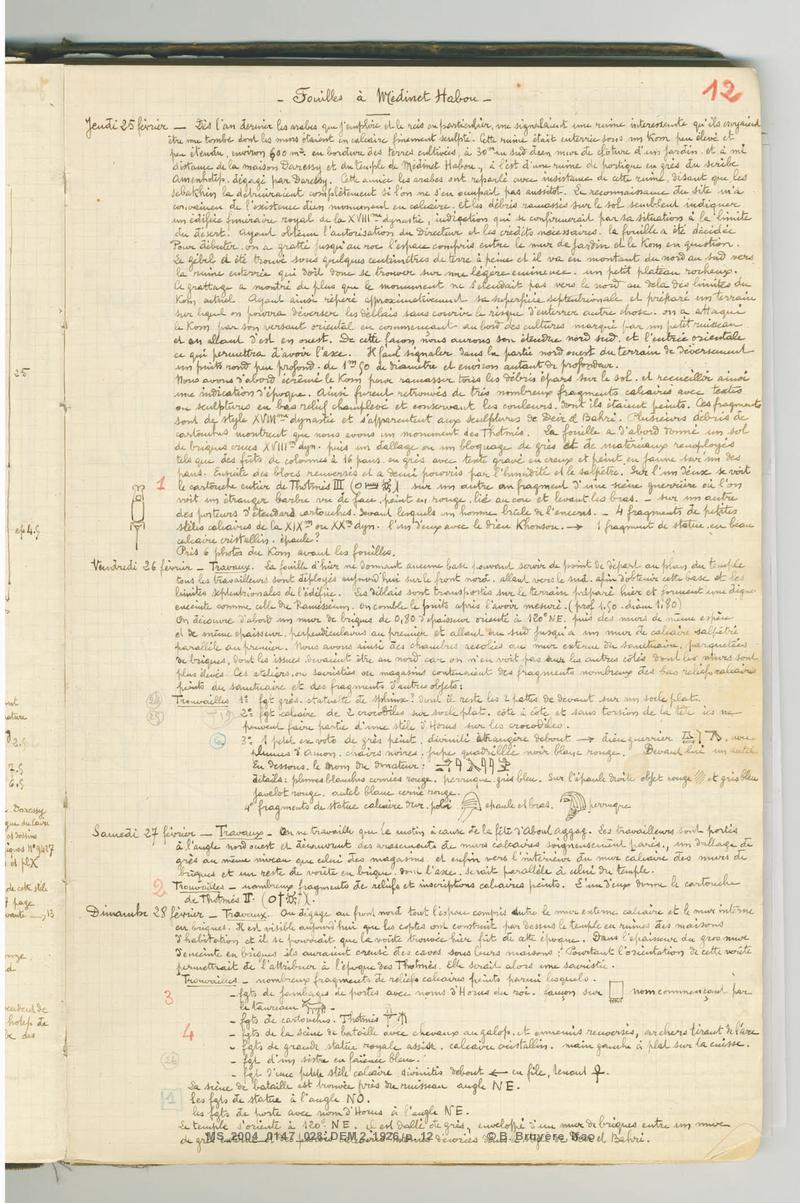 12
- Fouilles à Médinet Habou -
Jeudi 25 février — Dès l'an dernier les arabes que j'emploie et le reis en particulier, me signalaient une ruine interessante qu'ils croyaient
être une tombe dont les murs étaient en calcaire finement sculpté. Cette ruine était enterrée sous un Kom peu élevé et
peu étendu, environ 600 m² en bordure des terres cultivées, à 30m au sud d'un mur de cloture d'un jardin et à mi
distance de la maison Daressy et du temple de Médinet Habou, à l'est d'une ruine de portique en grès du scribe
Amenhotep, dégagé par Daressy. Cette année les arabes ont reparlé avec insistance de cette ruine, disant que les
sebakhin la détruiraient complètement si l'on ne s'en occupait pas aussitot. La reconnaissance du site m'a
convaincu de l'existence d'un monument en calcaire, et les débris ramassés sur le sol semblent indiquer
un édifice funéraire royal de la XVIIIme dynastie, indication qui se confirmerait par sa situation à la limite
du désert. Ayant obtenu l'autorisation du Directeur et les crédits nécessaires, la fouille a été décidée
Pour débuter, on a gratté jusqu'au roc l'espace compris entre le mur de jardin et le Kom en question.
Le gébel a été trouvé sous quelques centimètres de terre à peine et il va en montant du nord au sud vers
la ruine enterrée qui doit donc se trouver sur une légère eminence, un petit plateau rocheux.
Ce grattage a montré de plus que le monument ne s'étendait pas vers le nord au delà des limites du
Kom actuel. Ayant ainsi repéré approximativement sa superficie septentrionale et préparé un terrain
sur lequel on pourra déverser les déblais sans courir le risque d'enterrer autre chose, on a attaqué
le Kom par son versant oriental en commençant au bord des cultures marqué par un petit ruisseau
et en allant d'est en ouest. De cette façon nous aurons son étendue nord sud, et l'entrée orientale
ce qui permettra d'avoir l'axe. Il faut signaler dans la partie nord ouest du terrain de déversement
un puits rond peu profond, de 1m50 de diamètre et environ autant de profondeur.
Nous avons d'abord écrémé le Kom pour ramasser tous les débris épars sur le sol, et recueillir ainsi
une indication d'époque. Ainsi furent retrouvés de très nombreux fragments calcaires avec textes
ou sculptures en bas relief champlevé et conservant les couleurs dont ils étaient peints. Ces fragments
sont de style XVIIIme dynastie et s'apparentent aux sculptures de Deir el Bahri. Plusieurs débris de
cartouches montrent que nous avons un monument des Thotmès. La fouille a d'abord donné un sol
de briques crues XVIIIme dyn. puis un dallage ou un blocage de grès et de matériaux remployés
tels que des fûts de colonnes à 16 pans en grès avec texte gravé en creux et peint en jaune sur un des
pans. Ensuite des blocs renversés et a demi pourris par l'humidité et le salpêtre. Sur l'un d'eux se voit
1 le cartouche entier de Thotmès III sur un autre un fragment d'une scène guerrière où l'on
voit un étranger barbu vu de face, peint en rouge, lié au cou et levant les bras. — sur un autre
des porteurs d'étendard cartouches devant lesquels un homme brûle de l'encens. — 4 fragments de petites
stèles calcaires de la XIXme ou XXme dyn. l'un d'eux avec le dieu Khonsou. → 1 fragment de statue en beau
calcaire cristallin. épaule?
Pris 6 photos du Kom avant les fouilles.
Vendredi 26 février — Travaux. La fouille d'hier ne donnant aucune base pouvant servir de point de départ au plan du temple
tous les travailleurs sont déployés aujourd'hui sur le front nord, allant vers le sud, afin d'obtenir cette base et les
limites septentrionales de l'édifice. Les déblais sont transportés sur le terrain préparé hier et forment une digue
enceinte comme celle du Ramesseum. On comble le puits après l'avoir mesuré. (prof. 1.50 - diam 1.80)
On découvre d'abord un mur de briques de 0,80 d'épaisseur orienté à 120° NE. puis des murs de même espèce
et de même épaisseur, perpendiculaires au premier et allant au sud jusqu'à un mur de calcaire salpêtré
parallèle au premier. Nous avons ainsi des chambres accolées au mur externe du sanctuaire, parquetées
de briques, dont les issues devaient être au nord car on n'en voit pas sur les autres côtés dont les murs sont
plus élevés. Ces ateliers, ou sacristies ou magasins contenaient des fragments nombreux des bas reliefs calcaire
peints du sanctuaire et des fragments d'autres objets:
Trouvailles 1° fgt grès. statuette de sphinx? dont il reste les 2 pattes de devant sur un socle plat.
2° fgt calcaire de 2 crocodiles sur socle plat, côte à côte et sans torsion de la tête ils ne
peuvent faire partie d'une stèle d'Horus sur les crocodiles.
3° 1 petit ex voto de grès peint, divinité étrangère debout → dieu guerrier
plumes d'amon, chairs noires, jupe quadrillée noir blanc rouge. Devant lui un autel
En dessous, le nom du donateur:
détails: plumes blanches cernées rouge, perruque gris bleu. Sur l'épaule droite objet rouge et gris bleu
javelot rouge, autel blanc cerné rouge.
4° fragments de statue calcaire dur, poli épaule et bras. perruque
Samedi 27 février — Travaux — On ne travaille que le matin à cause de la fête d'Aboul Aggag. Les travailleurs sont portés
à l'angle nord ouest et découvrent des arasements de murs calcaires soigneusement parés, un dallage de
grès au même niveau que celui des magasins, et enfin vers l'intérieur du mur calcaire des murs de
briques et un reste de voûte en brique, dont l'axe serait parallèle à celui du temple.
2 Trouvailles — nombreux fragments de reliefs et inscriptions calcaires peints. L'un d'eux donne le cartouche
de Thotmès II.
Dimanche 28 février — Travaux. On dégage au front nord tout l'espace compris entre le mur externe calcaire et le mur interne
en briques. Il est visible aujourd'hui que les coptes ont construit par dessus le temple en ruines des maisons
d'habitation et il se pourrait que la voûte trouvée hier fût de cette époque. Dans l'épaisseur du gros mur
d'enceinte en briques ils auraient creusé des caves sous leurs maisons? Pourtant l'orientation de cette voûte
permettrait de l'attribuer à l'époque des Thotmès. Elle serait alors une sacristie.
Trouvailles — nombreux fragments de reliefs calcaires peints parmi lesquels.
3 - fgts de jambages de portes avec noms d'Horus du roi. faucon sur nom commençant par
le taureau
- fgts de cartouches. Thotmès
4 - fgts de la scène de bataille avec chevaux au galop, et ennemis renversés, archers tirant de l'arc
- fgts de grande statue royale assise, calcaire cristallin. main gauche à plat sur la cuisse.
- fgt d'un sistre en faïence bleu.
- fgt d'une petite stèle calcaire divinités debout ← en file, tenant ☥.
La scène de bataille est trouvée près du ruisseau angle NE.
1 Les fgts de statue à l'angle NO.
les fgts de porte avec nom d'Horus à l'angle NE.
Le temple s'oriente à 120° NE. il est dallé de grès, enveloppé d'un mur de briques entre un mur
MS_2004_0147_028: DEM 2, 1926/p. 12 © B. Bruyère, Ifao